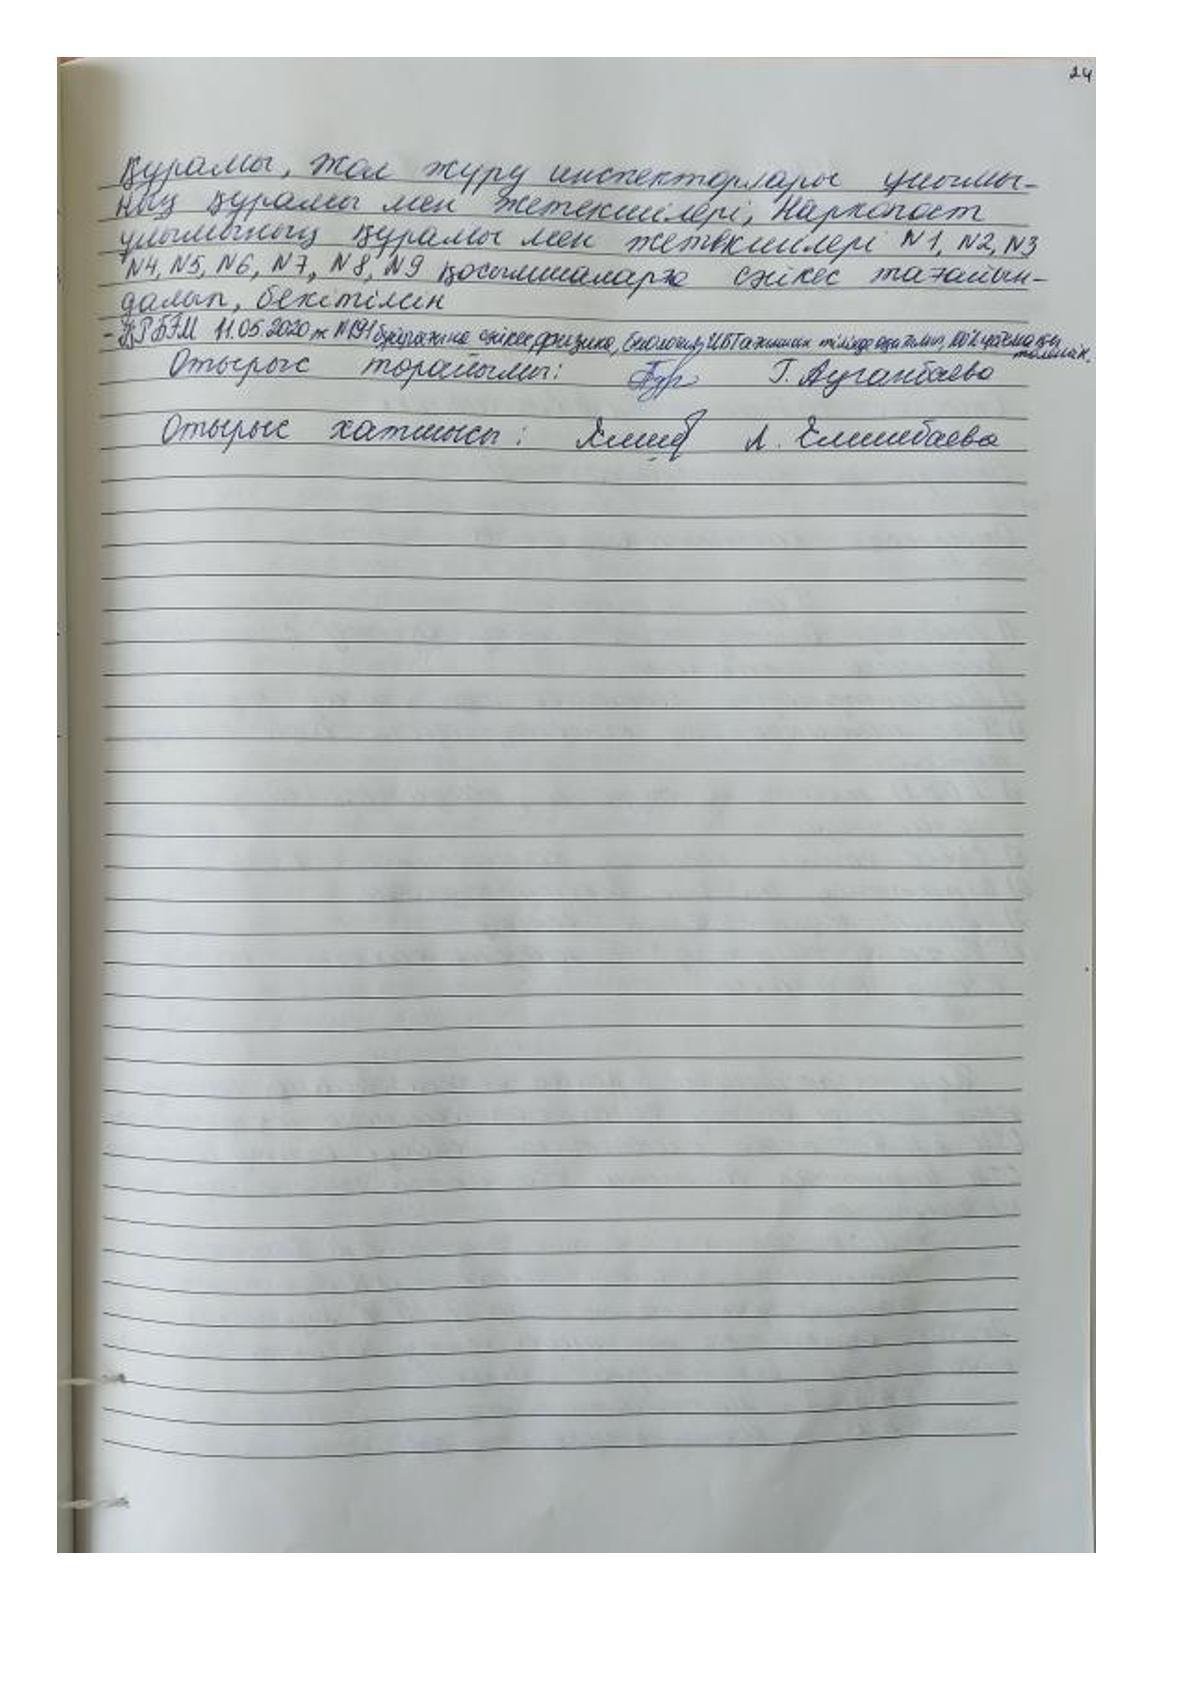 24
құрамы, жол жүру инспекторлары ұйымы-
ның құрамы мен жетекшілері, Наркопост
ұйымының құрамы мен жетекшілері N1, N2, N3
N4, N5, N6, N7, N8, N9 қосымшаларға сәйкес тағайын-
далып, бекітілсін
- ҚР БҒМ 11.05.2020 ж N191 бұйрығына сәйкес, физика, биология, ИБТ ағылшын тілінде
Отырыс төрайымы: Г. Ауганбаева
Отырыс хатшысы: Л. Елшибаева